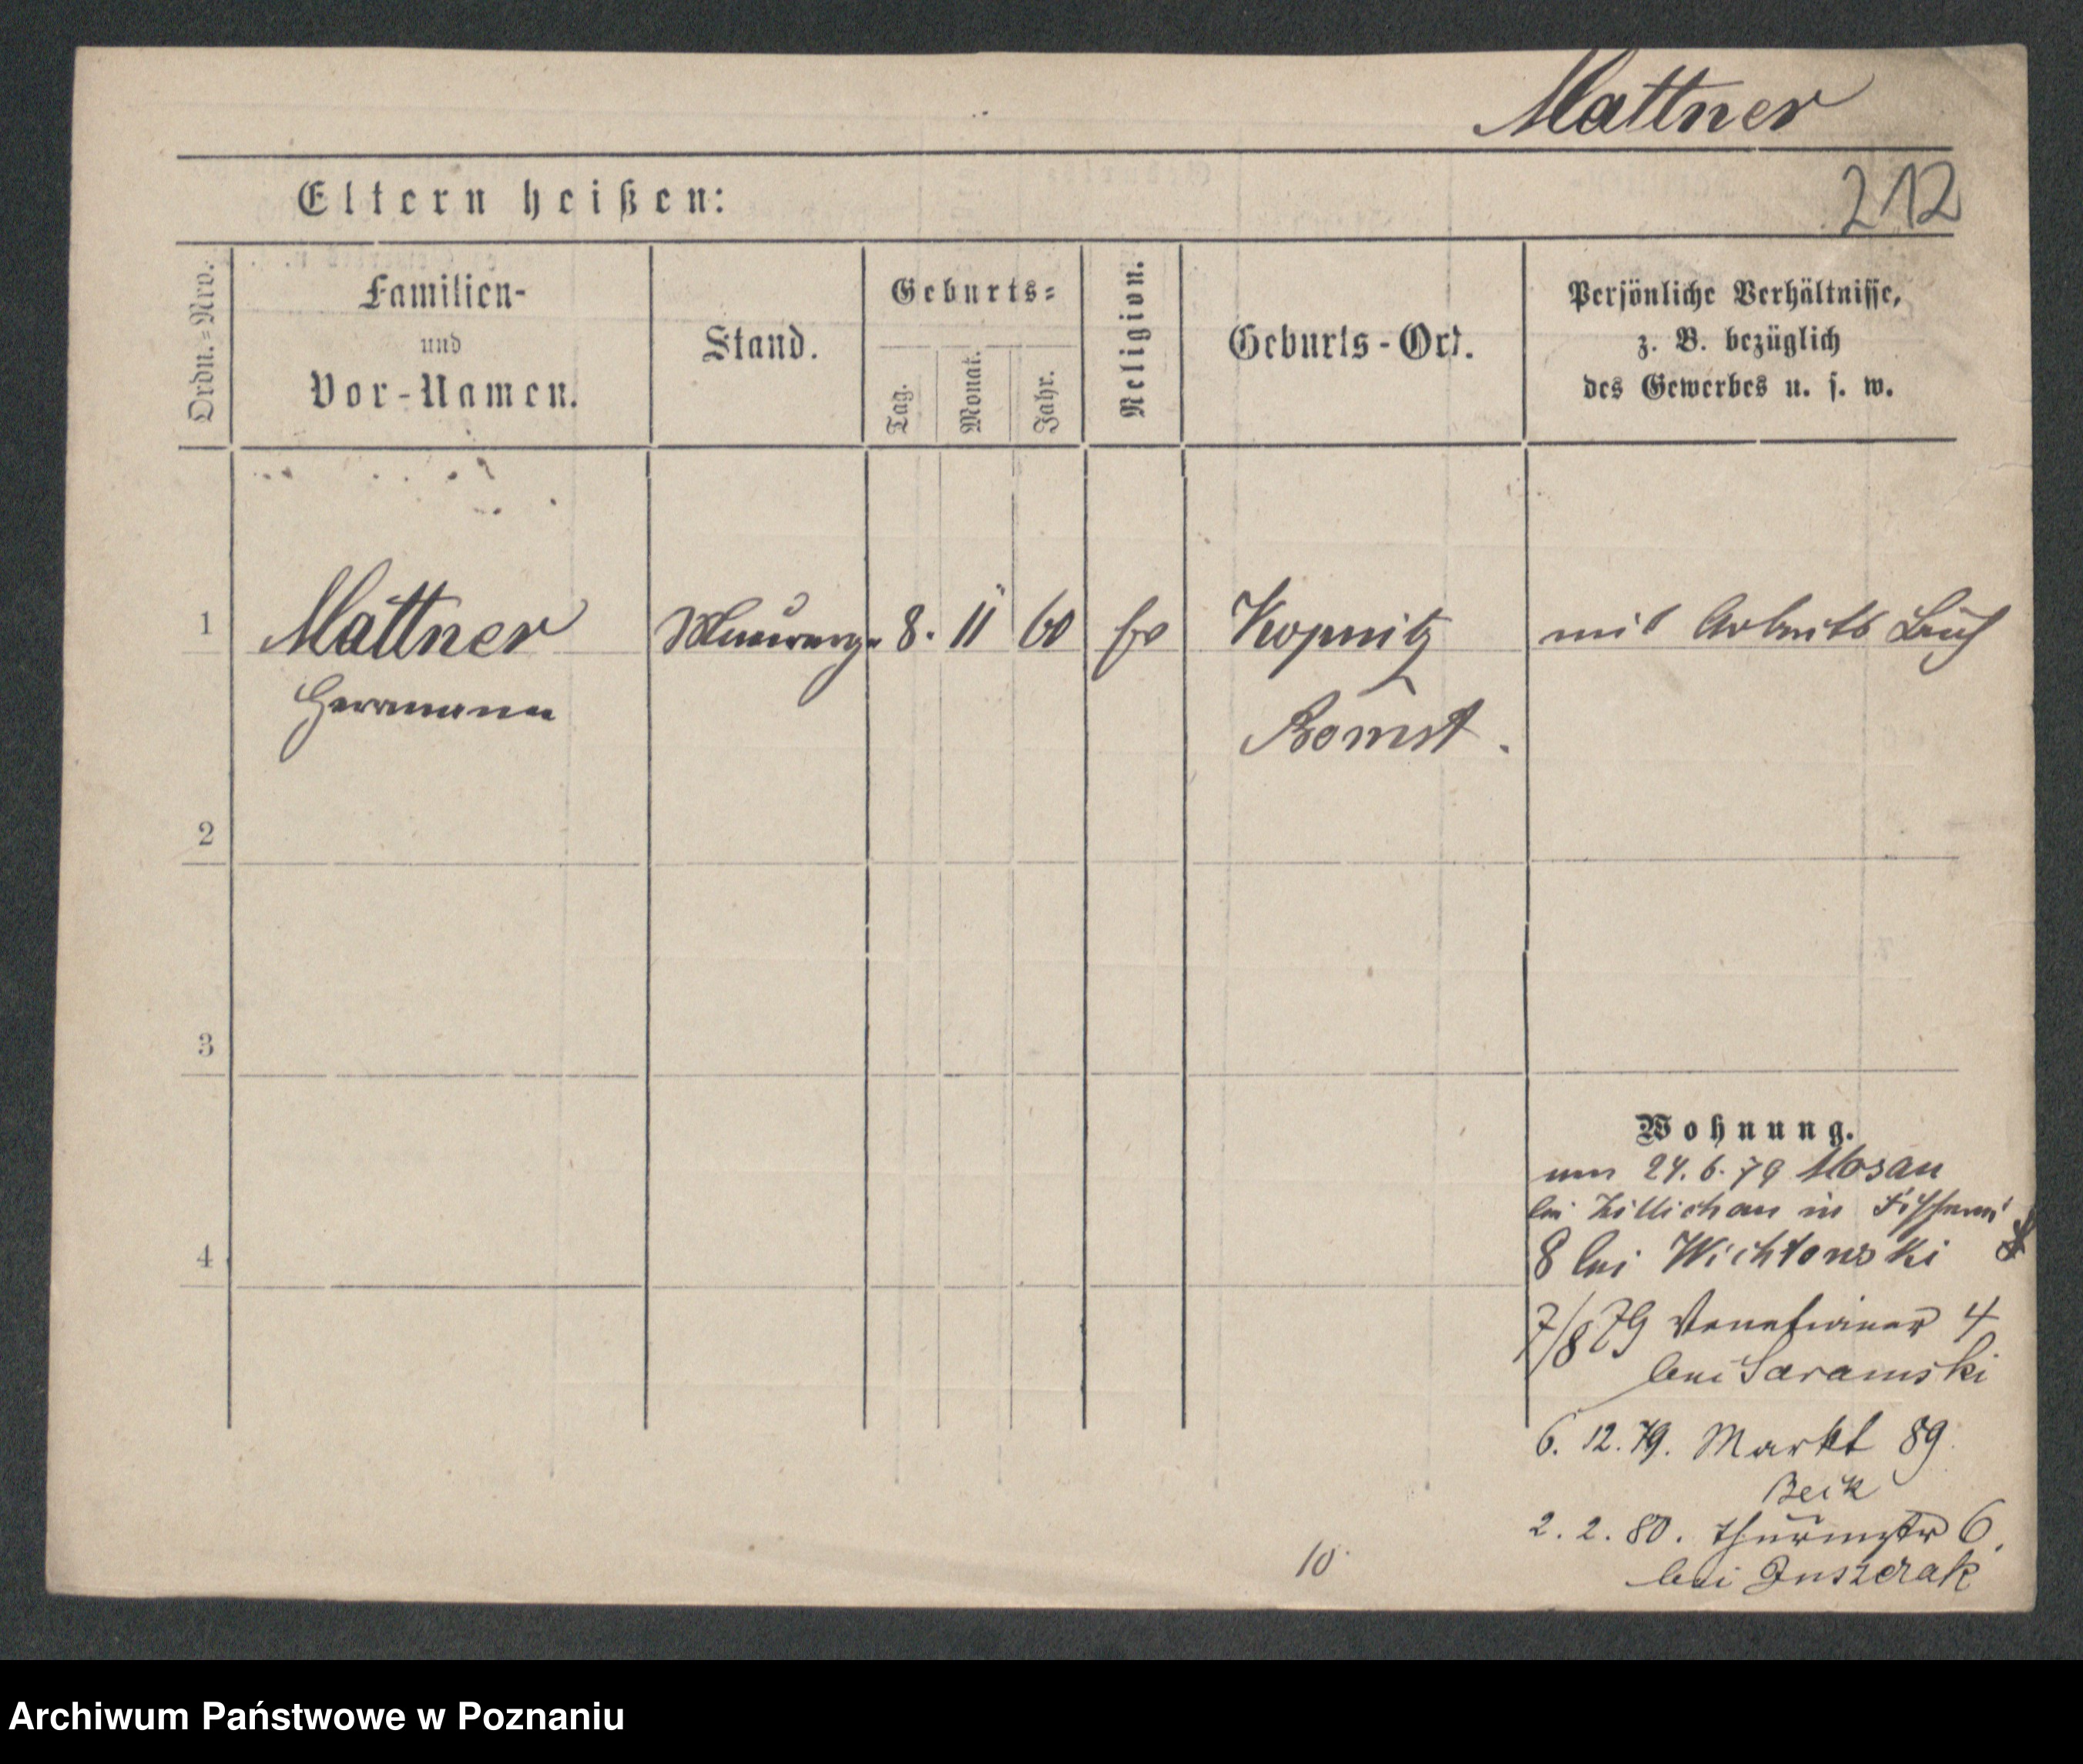 Mattner
212
Eltern heißen:
Ordn.=Nro.
Familien-
und
Vor-Namen.
Stand.
Geburts=
Tag.
Monat.
Jahr.
Religion.
Geburts-Ort.
Persönliche Verhältnisse,
z. B. bezüglich
des Gewerbes u. s. w.
1 Mattner 8. 11 60 Kopnitz mit Arbeits Buch
Herrmann
Bomst.
2
3
4
Wohnung.
24. 6. 79 Mosau
bei Züllichau in
8 bei Wichtowski
7/8 79 Venetianer 4
bei Saramski
6. 12. 79. Markt 89
2. 2. 80. Thurmstr 6.
bei
10.
Archiwum Państwowe w Poznaniu